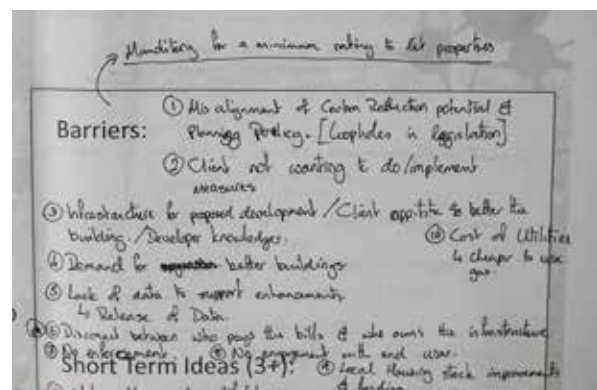 Manditory for a minimum rating to let properties
Barriers:
① Misalignment of Carbon Reduction potential &
Planning Policy. [Loopholes in legislation]
② Client not wanting to do/implement
measures
③ Infrastructure for proposed development / Client appitite to better the
building. / Developer knowledge.
⑩ Cost of Utilities
↳ cheaper to use
gas.
④ Demand for better buildings
⑤ Lack of data to support enhancements
↳ Release of Data.
⑥ Disconect between who pays the bills & who owns the infrastructure
⑦ No enforcement. ⑧ No engagement with end user.
Short Term Ideas (3+): ⑨ Local Housing stock improvements
& funding